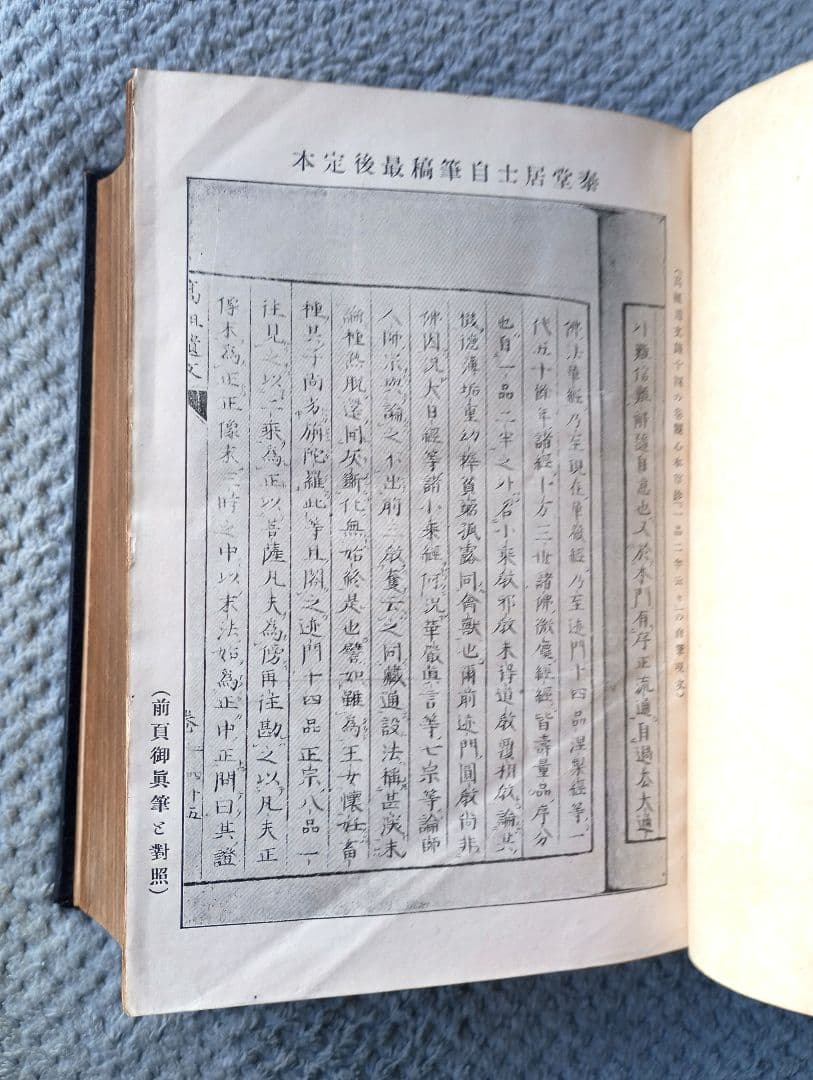 泰堂居士自筆稿最後定本
(高祖遺文錄十四の卷觀心本尊鈔「一品二半云々」の自筆現文)
外難信難解隨自意也又於本門有序正流通自過去大通
佛法華經乃至現在華嚴經乃至迹門十四品涅槃經等一
代五十餘年諸經十方三世諸佛微塵經經皆壽量品序分
也自一品二半之外名小乘敎邪敎未得道敎覆相敎論其
機德薄垢重幼稚貧窮孤露同禽獸也爾前迹門圓敎尚非
佛因況大日經等諸小乘經何況華嚴眞言等七宗等論師
人師宗與論之不出前三敎奪云之同藏通設法稱甚深未
論種熟脫還同灰斷化無始終是也譬如雖為王女懷妊畜
種其子尚劣旃陀羅此等且閣之迹門十四品正宗八品一
往見之以二乘為正以菩薩凡夫為傍再往勘之以凡夫正
像末為正正像末三時之中以末法始為正中正問曰其證
高祖遺文
(前頁御眞筆と對照)